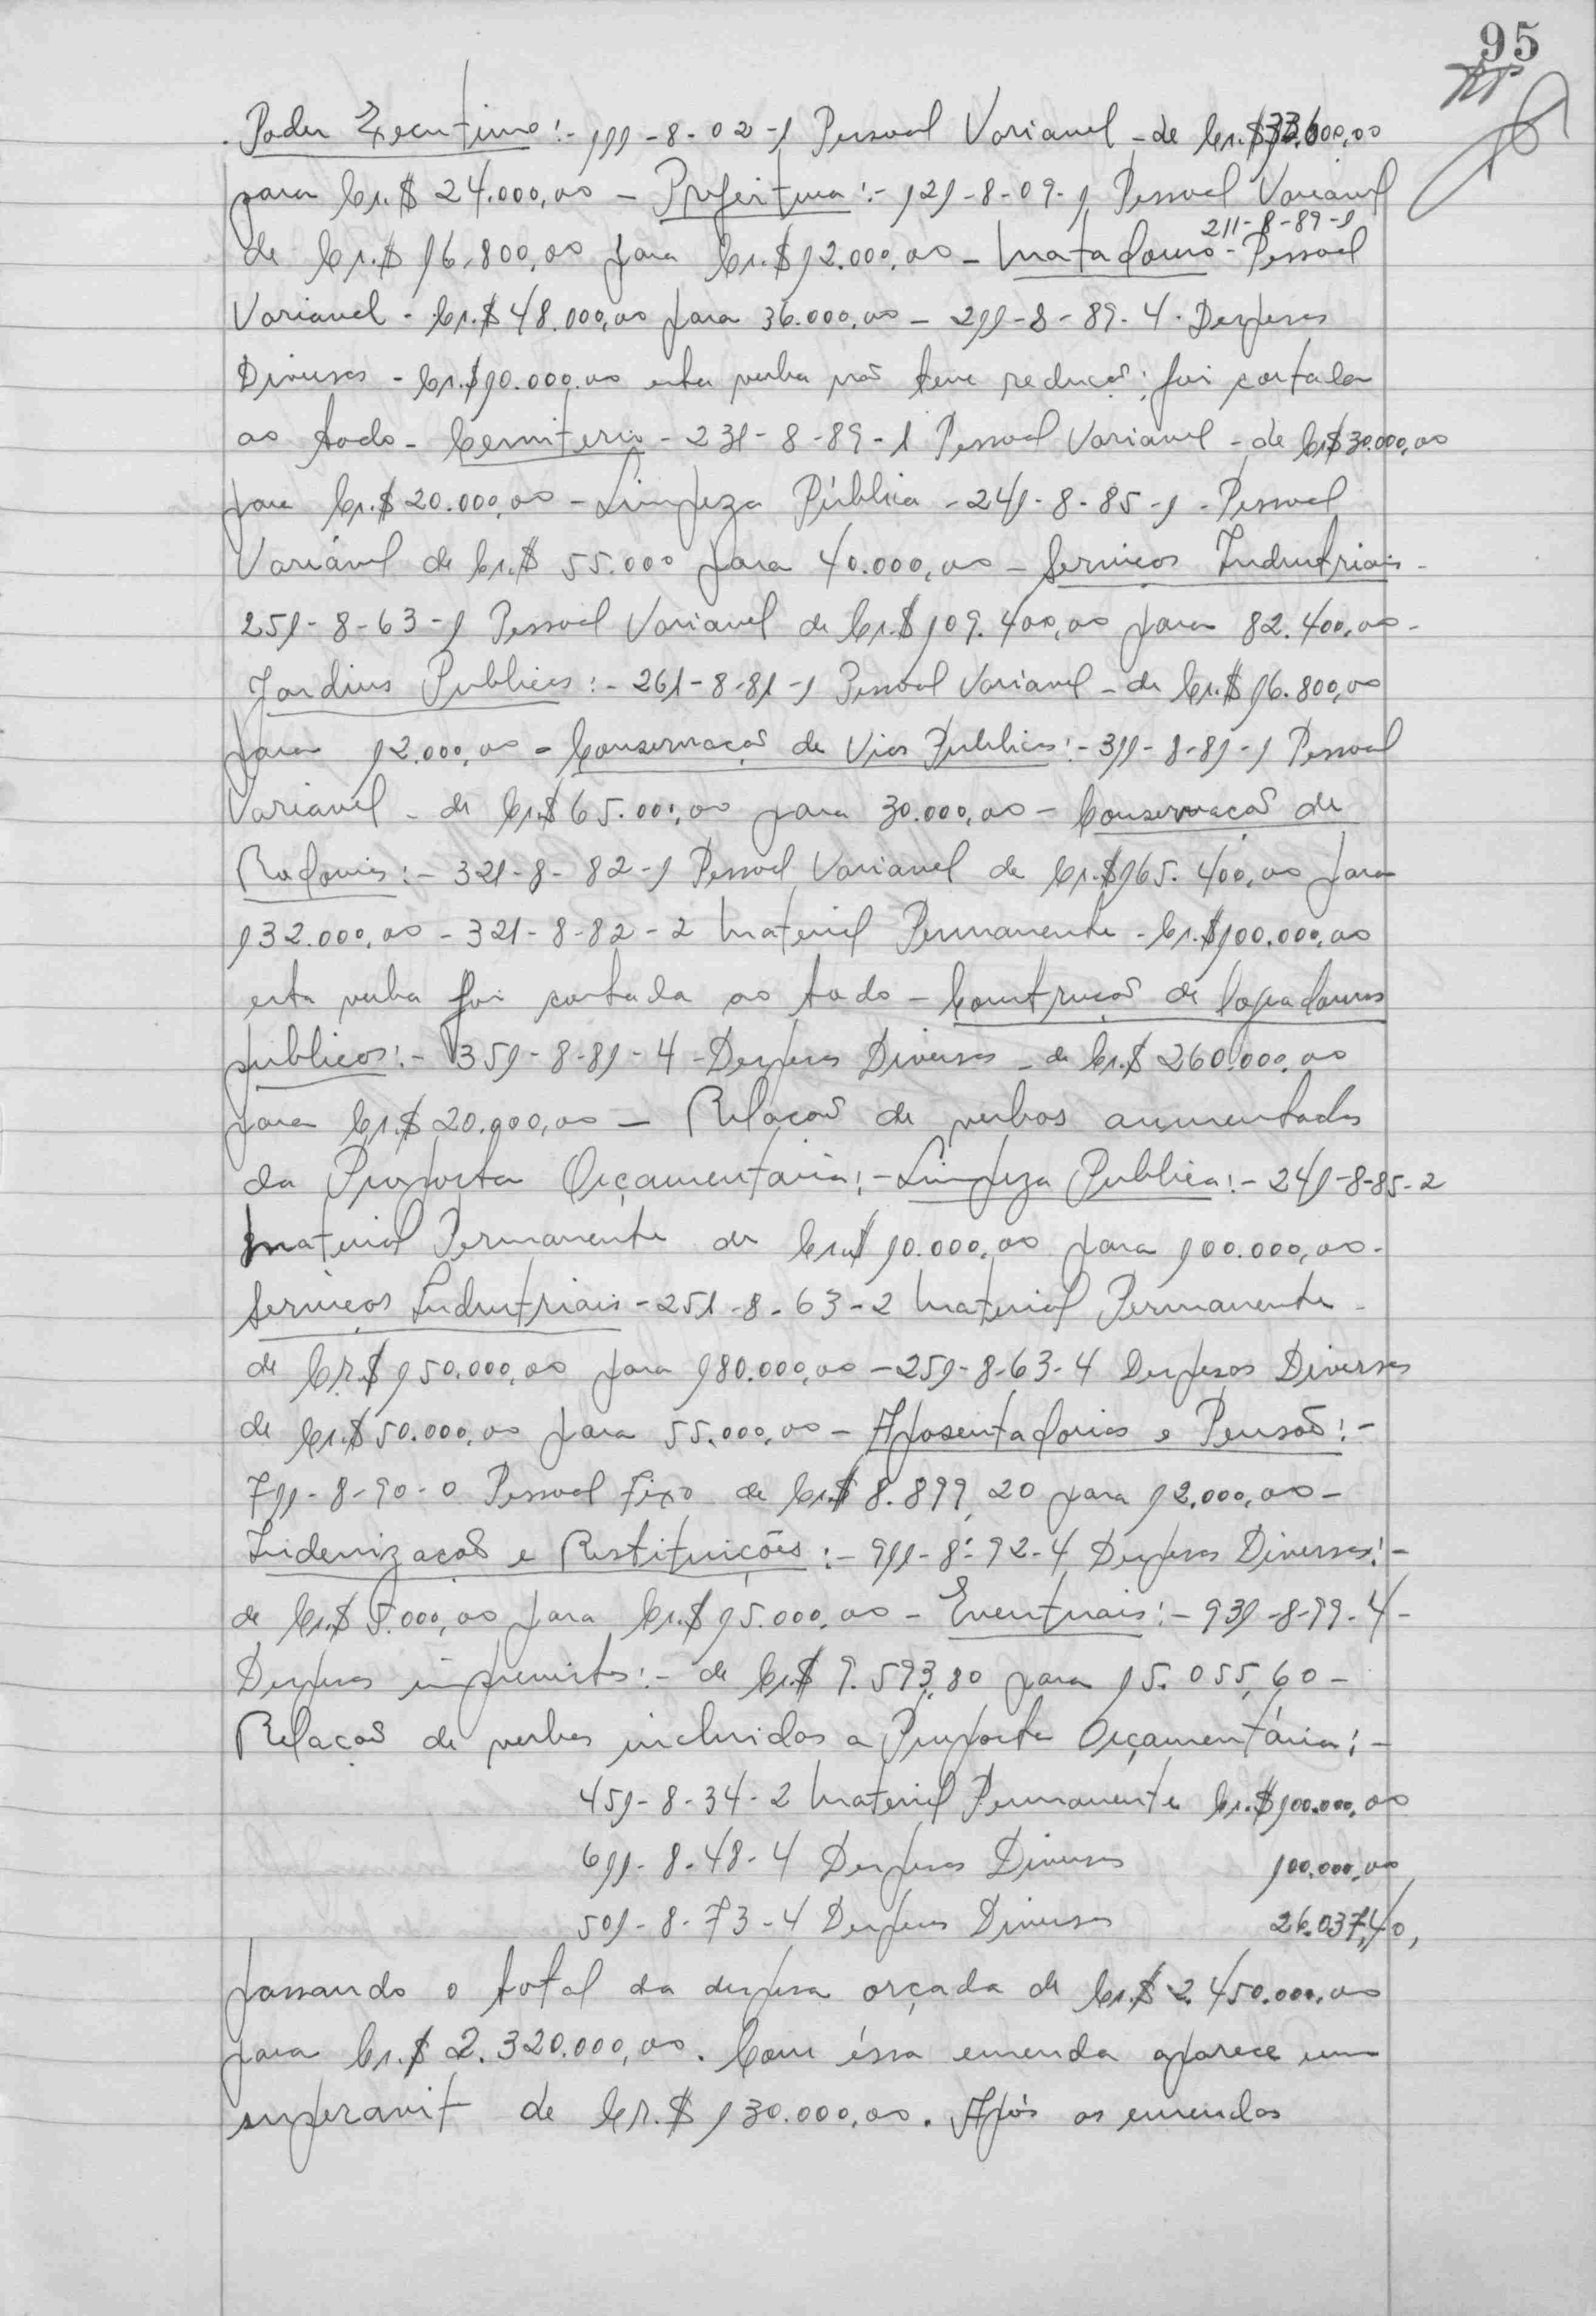 95
Poder Executivo:- 111-8-02-1 Pessoal Variavel - de Cr.$ 33.600,00
para Cr.$ 24.000,00 - Prefeitura:- 121-8-09-1 Pessoal Variavel
211-8-89-1
de Cr.$ 16.800,00 para Cr.$ 12.000,00 - Matadouro - Pessoal
Variavel - Cr.$ 48.000,00 para 36.000,00 - 211-8-89-4 - Despesas
Diversas - Cr.$ 10.000,00 esta verba não teve redução; foi cortada
ao todo - Cemiterio - 231-8-89-1 Pessoal Variavel - de Cr$ 30.000,00
para Cr.$ 20.000,00 - Limpeza Pública - 241-8-85-1 - Pessoal
Variável de Cr.$ 55.000 para 40.000,00 - Serviços Industriais -
251-8-63-1 Pessoal Variavel de Cr.$ 109.400,00 para 82.400,00 -
Jardins Publicos:- 261-8-81-1 Pessoal Variavel - de Cr.$ 16.800,00
para 12.000,00 - Conservação de Vias Publicas:- 311-8-81-1 Pessoal
Variavel - de Cr.$ 65.000,00 para 30.000,00 - Conservação de
Rodovias:- 321-8-82-1 Pessoal Variavel de Cr.$ 165.400,00 para
132.000,00 - 321-8-82-2 Material Permanente - Cr.$ 100.000,00
esta verba foi cortada ao todo - Construção de Logradouros
publicos:- 351-8-81-4 - Despesas Diversas - de Cr.$ 260.000,00
para Cr.$ 20.000,00 - Relação de verbas aumentadas
da Proposta Orçamentaria:- Limpeza Publica:- 241-8-85-2
Material Permanente de Cr.$ 10.000,00 para 100.000,00 -
Serviços Industriais - 251-8-63-2 Material Permanente -
de Cr.$ 150.000,00 para 180.000,00 - 251-8-63-4 Despesas Diversas
de Cr.$ 50.000,00 para 55.000,00 - Aposentadorias e Pensão:-
711-8-90-0 Pessoal Fixo de Cr.$ 8.899,20 para 12.000,00 -
Indenização e Restituições:- 911-8-92-4 Despesas Diversas:-
de Cr.$ 5.000,00 para Cr.$ 15.000,00 - Eventuais:- 931-8-99-4-
Despesas imprevistas:- de Cr.$ 9.593,80 para 15.055,60 -
Relação de verbas incluidas a Proposta Orçamentária:-
451-8-34-2 Material Permanente Cr.$ 100.000,00
611-8-48-4 Despesas Diversas 100.000,00
501-8-73-4 Despesas Diversas 26.037,40,
passando o total da despesa orçada de Cr.$ 2.450.000,00
para Cr.$ 2.320.000,00. Com éssa emenda aparece um
superavit de Cr.$ 130.000,00. Após as emendas